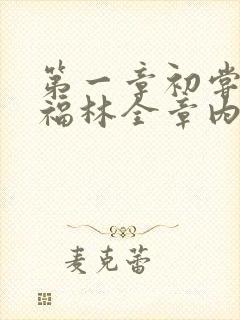 第一章初尝
福林全章内
麦克蕾